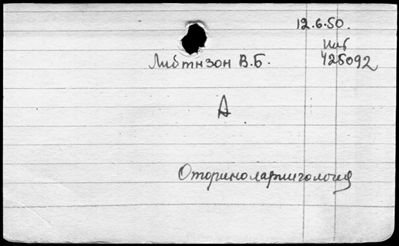 12.6.50.
Инв
425092
Либтнзон В.Б.
А
Оториноларингология